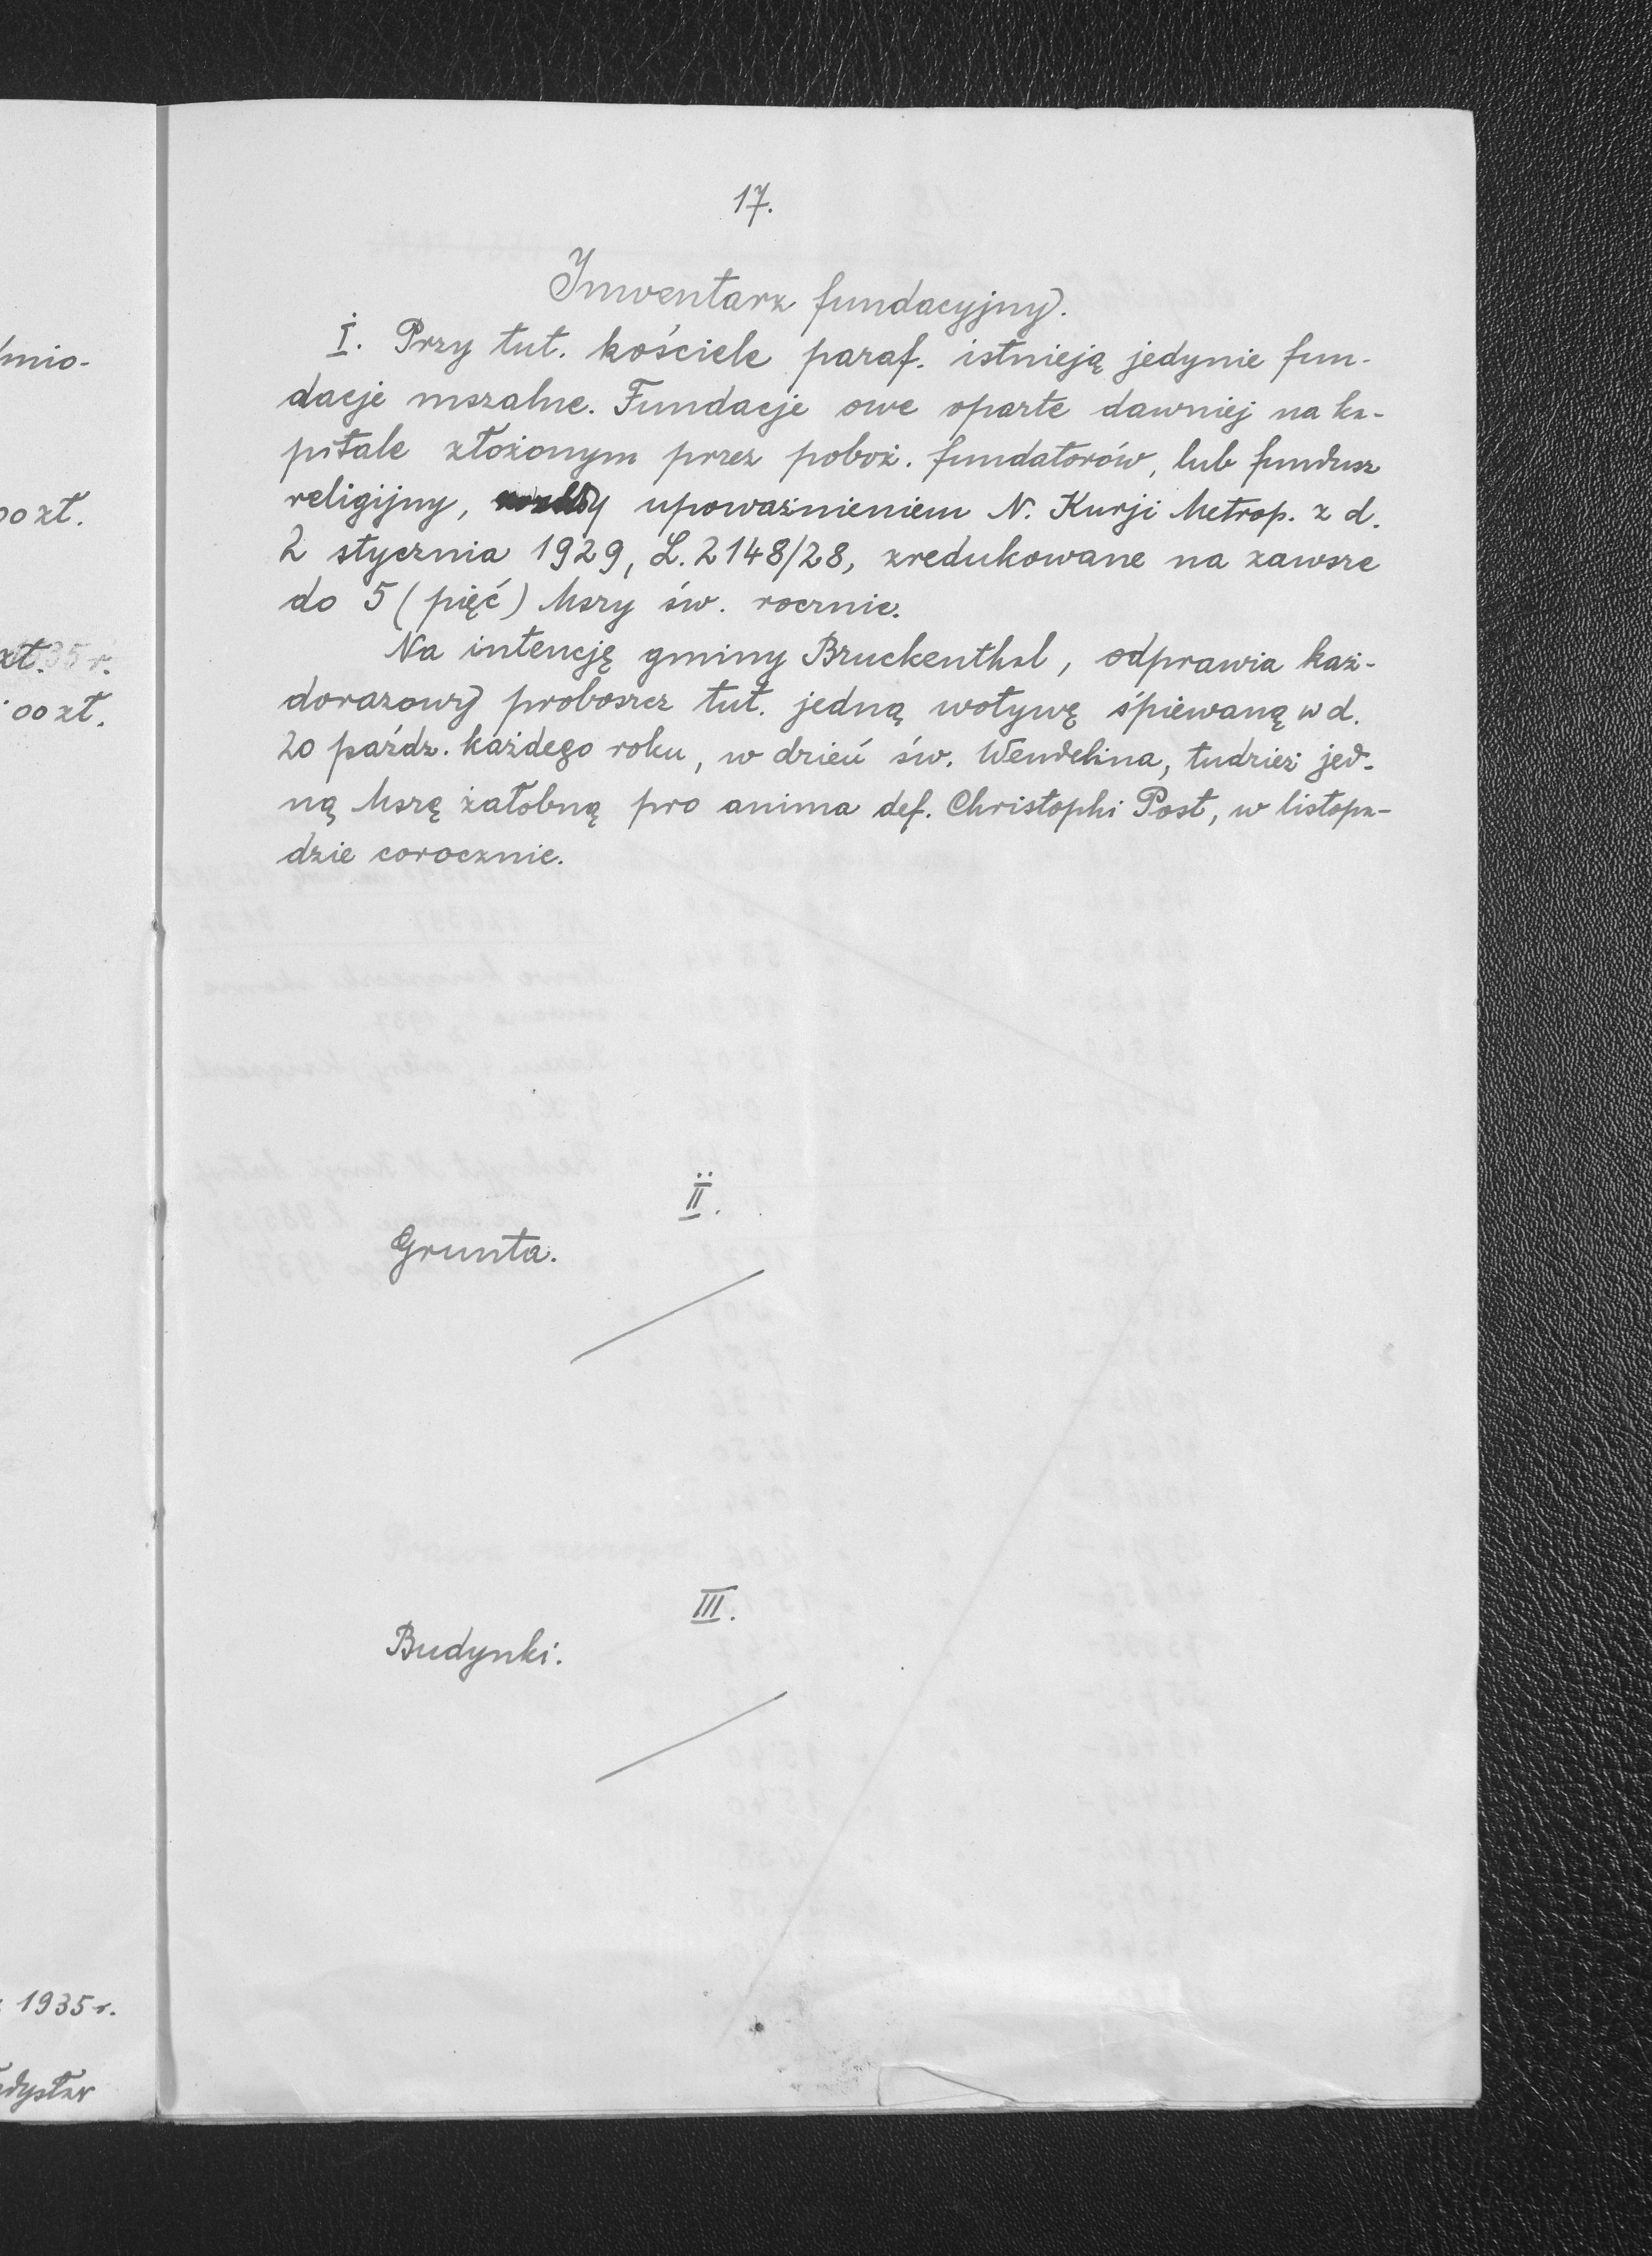 17.
Inwentarz fundacyjny.
I. Przy tut. kościele paraf. istnieją jedynie fun-
dacje mszalne. Fundacje owe oparte dawniej na ka-
pitale złożonym przez poboż. fundatorów, lub fundusz
religijny, upoważnieniem N. Kurji Metrop. z d.
2 stycznia 1929, L. 2148/28, zredukowane na zawsze
do 5 (pięć) Mszy św. rocznie.
Na intencję gminy Bruckenthal, odprawia każ-
dorazowy proboszcz tut. jedną wotywę śpiewaną w d.
20 paźdz. każdego roku, w dzień św. Wendelina, tudzież jed-
ną Mszę żałobną pro anima def. Christophi Post, w listopa-
dzie corocznie.
II.
Grunta.
III.
Budynki.
mio-
00 zł.
zł.
00 zł.
1935 r.